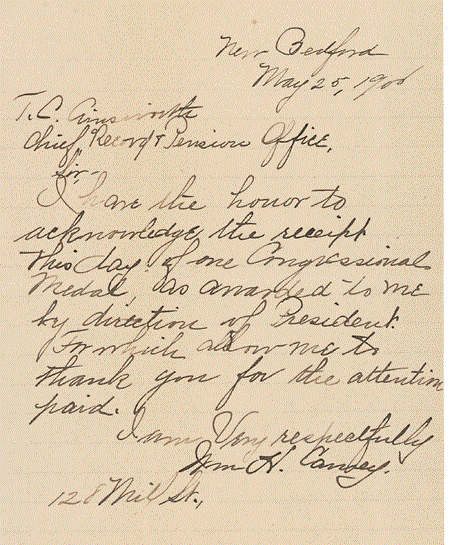 New Bedford
May 25, 1900
T. C. Ainsworth
Chief, Record & Pension Office,
Sir,-
I have the honor to
acknowledge the receipt
this day, of one Congressional
Medal, as awarded to me
by direction of President.
For which allow me to
thank you for the attention
paid.
I am Very respectfully
Wm H. Carney.
128 Mill St.,